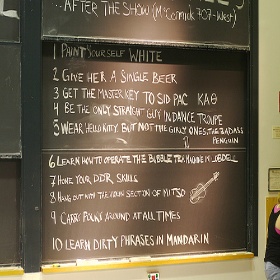 ..AFTER THE SHOW (McCormick 707-West)
1 PAINT YOURSELF WHITE
2 GIVE HER A SINGLE BEER
3 GET THE MASTER KEY TO SID PAC KAΘ
4 BE THE ONLY STRAIGHT GUY IN DANCE TROUPE
5 WEAR HELLO KITTY BUT NOT THE GIRLY ONES, THE BADASS
PENGUIN
6 LEARN HOW TO OPERATE THE BUBBLE TEA MACHINE IN LOBDELL
7 HONE YOUR DDR SKILLS
8 HANG OUT WITH THE VIOLIN SECTION OF MITSO
9 CARRY POCKY AROUND AT ALL TIMES
10 LEARN DIRTY PHRASES IN MANDARIN